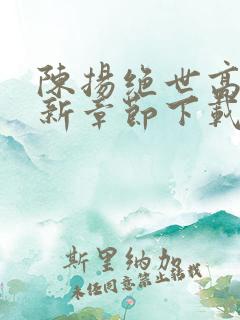 陳揚絕世高
新章節下載
斯里納加
未经同意禁止转载